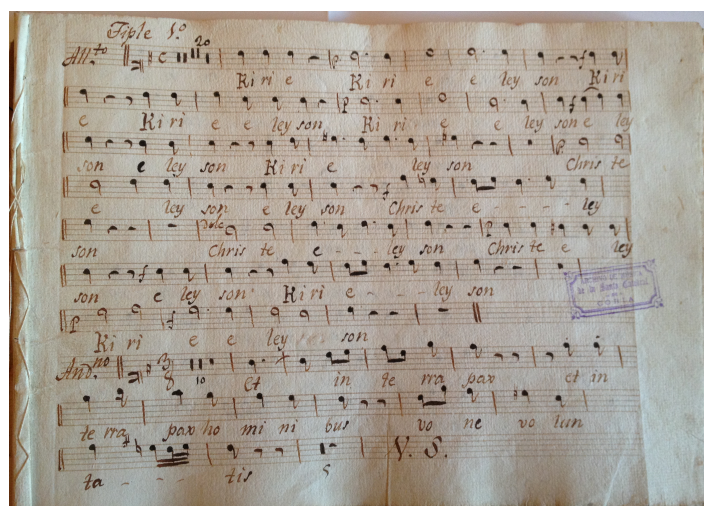 Tiple 1.º
All.to C 20
Ki ri e Ki ri e e ley son Ki ri
e Ki ri e e ley son Ki ri e e ley son e ley
son e ley son Ki ri e ley son Chris te
e ley son e ley son Chris te e - - - - ley
Dolc
son Chris te e - - - ley son Chris te e ley
son e ley son Ki ri e - - - ley son
Ki ri e e ley son
And.no 3 8 10
et in te rra pax et in
te rra pax ho mi ni bus vo ne vo lun
V. S.
ta - - - - tis